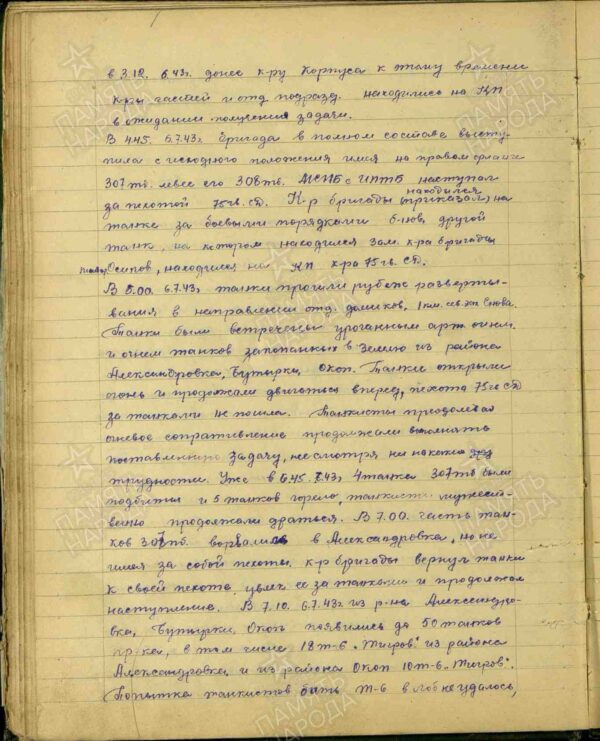 в 3.12. 6.43г. донес к-ру Корпуса к этому времени
к-ры частей и отд. подразд. находились на КП
в ожидании получения задачи.
В 4.45. 6.7.43г. Бригада в полном составе высту-
пила с исходного положения имея на правом фланге
307тб. левее его 308тб. МСПБ с ИПТБ наступал
за пехотой 75гв.сд. К-р бригады (приказал) находился на
танке за боевыми порядками б-нов, другой
танк, на котором находился зам. к-ра бригады
Осипов, находился на КП к-ра 75гв. сд.
В 5.00. 6.7.43г танки прошли рубеж разверты-
вания в направлении отд. домиков, 1км. сев. зап. Снова.
Танки были встречены ураганным арт. огнем
и огнем танков закопанных в землю из района
Александровка, Бутырки, Окоп. Танки открыли
огонь и продолжали двигаться вперед, пехота 75гв сд
за танками не пошла. Танкисты преодолевая
огневое сопротивление продолжали выполнять
поставленную задачу, несмотря ни на какие
трудности. Уже в 6.45. 7.43г 4 танка 307тб были
подбиты и 5 танков горело, танкисты мужест-
венно продолжали драться. В 7.00. часть тан-
ков 307тб. ворвались в Александровка, но не
имея за собой пехоты, к-р бригады вернул танки
к своей пехоте, увлек ее за танками и продолжал
наступление. В 7.10. 6.7.43г из р-на Александро-
вка, Бутырки, Окоп появились до 50 танков
пр-ка, в том числе 18 т-6 „Тигров" из района
Александровка, и из района Окоп 10 т-6 „Тигров".
Попытка танкистов бить Т-6 в лоб не удалось,
ПАМЯТЬ НАРОДА